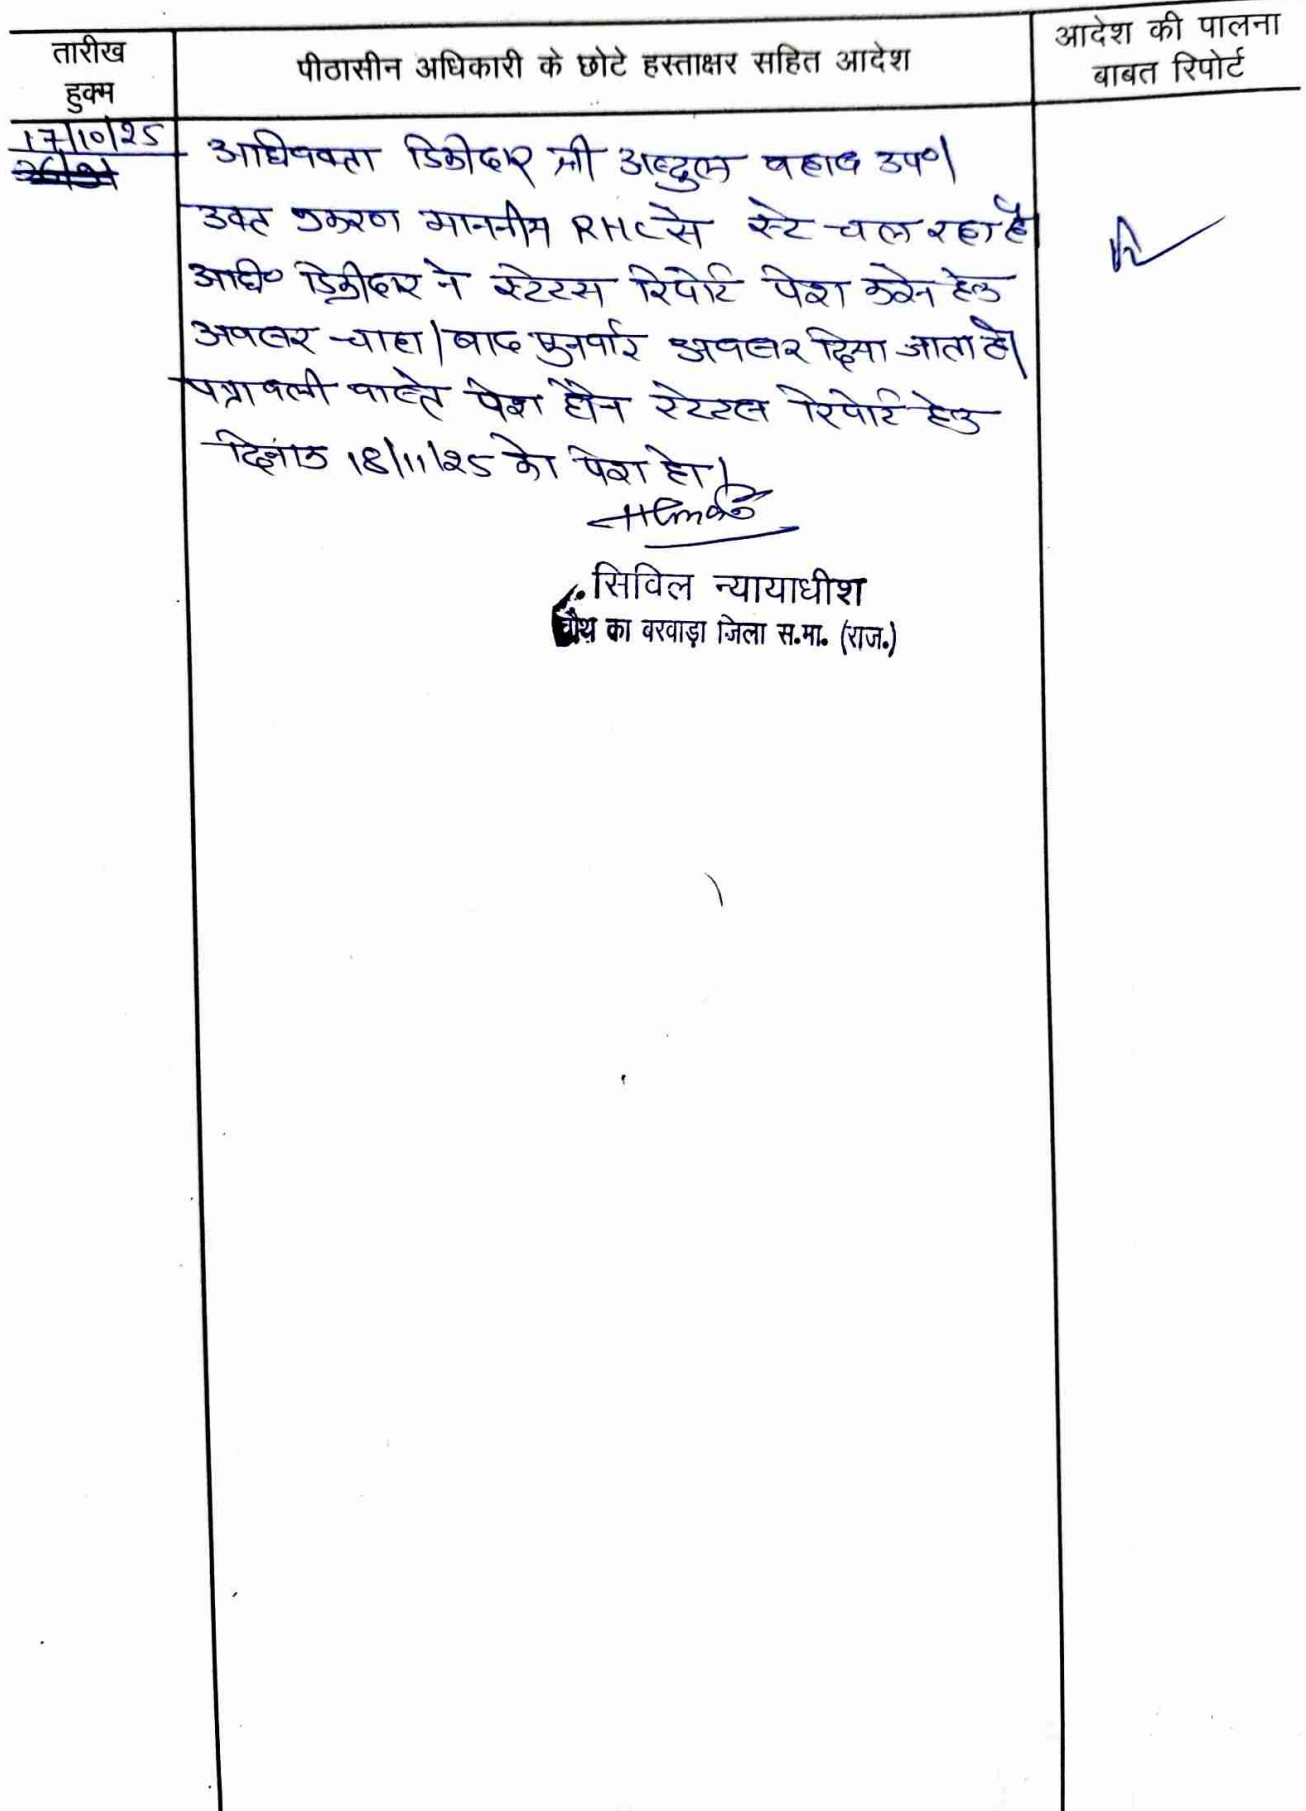 तारीख
हुक्म
पीठासीन अधिकारी के छोटे हस्ताक्षर सहित आदेश
आदेश की पालना
बाबत रिपोर्ट
17/10/25
अधिवक्ता डिक्रीदार श्री अब्दुल वहाब उप०।
उक्त प्रकरण माननीय RHC से स्टे चल रहा है
अधि० डिक्रीदार ने स्टेटस रिपोर्ट पेश करने हेतु
अवसर चाहा। बाद पुनर्वार अवसर दिया जाता है।
पत्रावली वास्ते पेश होने स्टेटस रिपोर्ट हेतु
दिनांक 18/11/25 को पेश हो।
सिविल न्यायाधीश
चौथ का बरवाड़ा जिला स.मा. (राज.)